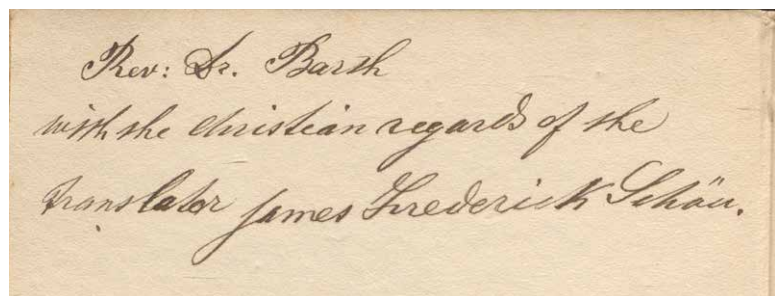 Rev: Dr. Barth
with the Christian regards of the
translator James Frederick Schön.